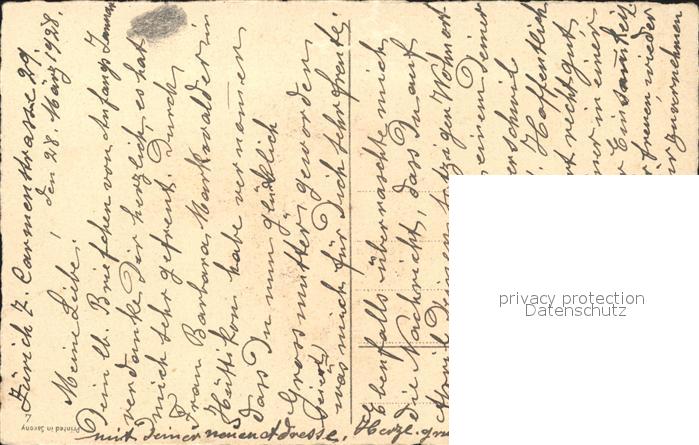 Zürich 7. Carmenstrasse 29.
den 28. März 1928.
Meine Liebe!
Dein lb. Briefchen von Anfangs Januar
verdanke Dir herzlich, es hat
mich sehr gefreut. Durch
Frau Barbara Markwalder in
Hüttikon habe vernomen
dass Du nun glücklich
Grossmutter geworden
seiest,
was mich für Dich sehr freute.
Ebenfalls überraschte mich
die Nachricht, dass Du auf
Deinen jetzigen Wohnort
einem Deiner
Hoffentlich
recht gut,
in einer
Einsamkeit
freuen wieder
zu vernehmen
mit Deiner neuen Adresse. Herzl.
Printed in Saxony
privacy protection
Datenschutz